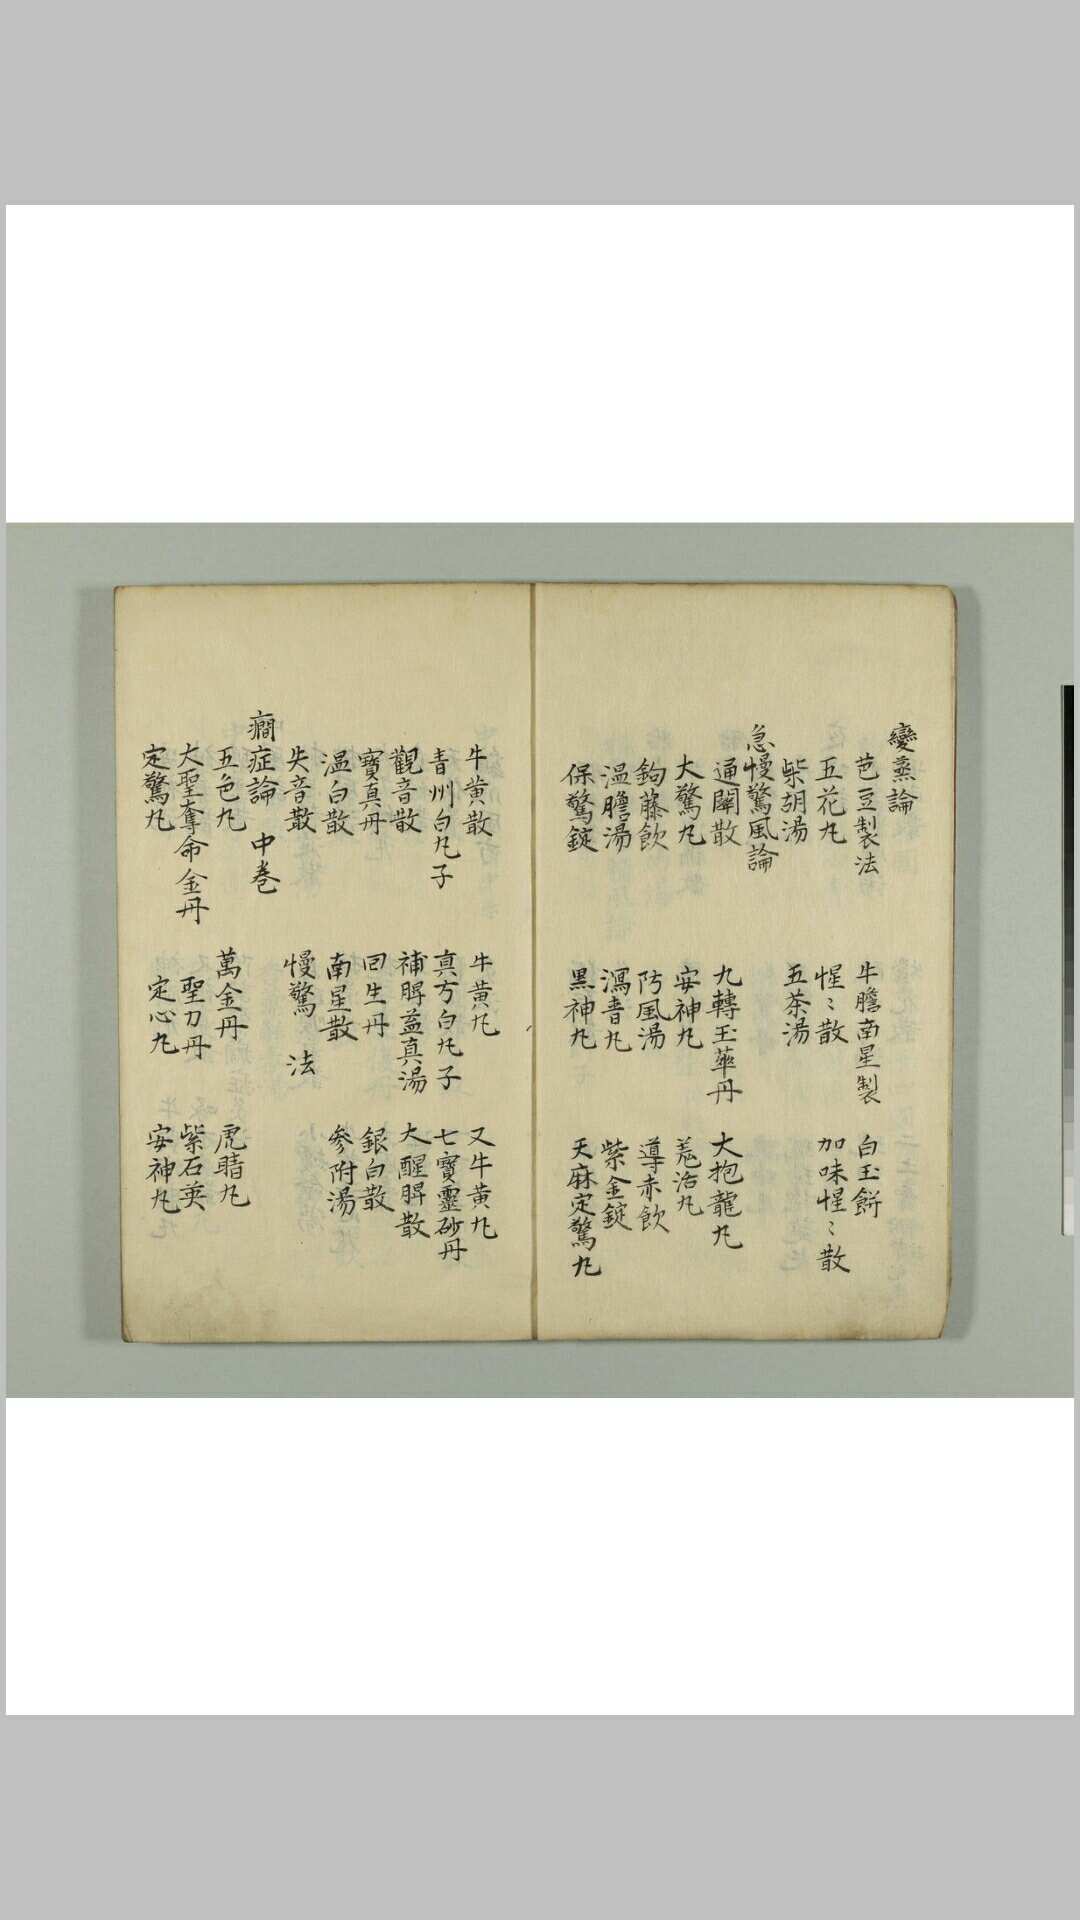 變蒸論
芭豆製法　牛膽南星製　白玉餅
五花丸　惺〻散　加味惺〻散
柴胡湯　五苓湯
急慢驚風論
通關散　九轉玉華丹　大抱龍丸
大驚丸　安神丸　羗活丸
鉤藤飲　防風湯　導赤飲
温膽湯　瀉青丸　紫金錠
保驚錠　黒神丸　天麻定驚丸
牛黄散　牛黄丸　又牛黄丸
青州白丸子　真方白丸子　七寳靈砂丹
觀音散　補脾益真湯　大醒脾散
寳真丹　回生丹　銀白散
温白散　南星散　參附湯
失音散　慢驚　法
癇症論　中巻
五色丸　萬金丹　虎睛丸
大聖奪命金丹　聖力丹　紫石英
定驚丸　定心丸　安神丸